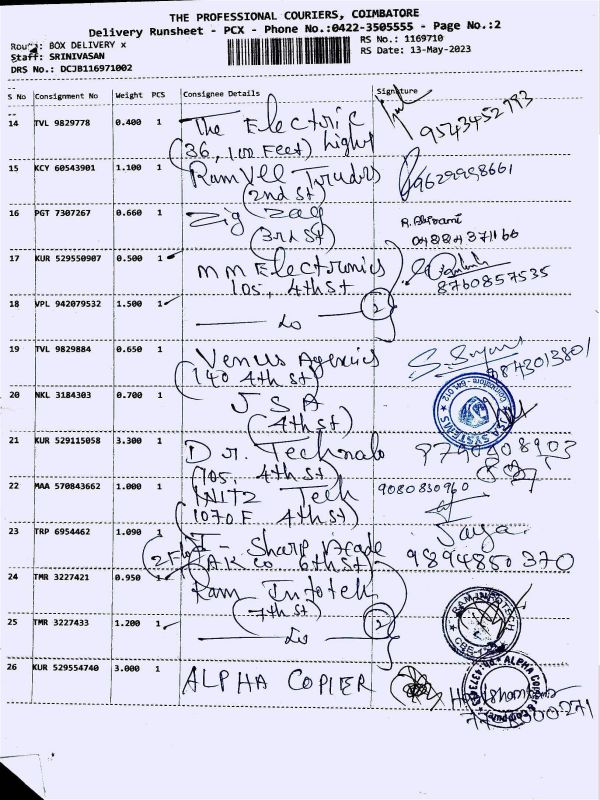 THE PROFESSIONAL COURIERS, COIMBATORE
Delivery Runsheet - PCX - Phone No.:0422-3505555 - Page No.:2
Route: BOX DELIVERY x
RS No.: 1169710
Staff: SRINIVASAN
RS Date: 13-May-2023
DRS No.: DCJB116971002
S No Consignment No Weight PCS Consignee Details Signature
14 TVL 9829778 0.400 1 The Electric
(36, 100 Feet)
9543452793
15 KCY 60543901 1.100 1 Ram Vel Traders
(2nd St)
9629998661
16 PGT 7307267 0.660 1 Zig Zag
(3rd St)
17 KUR 529550907 0.500 1 MM Electronics
105, 4th St
8760857535
18 VPL 942079532 1.500 1 Do 2
19 TVL 9829884 0.650 1 Venus Agencies
(140 4th St)
20 NKL 3184303 0.700 1 JSA
(4th St)
JSA SYSTEMS
21 KUR 529115058 3.300 1 Dr. Technalo
(105, 4th St)
22 MAA 570843662 1.000 1 INITZ Tech
(1070F 4th St)
9080830960
23 TRP 6954462 1.090 1 I - Sharp
AK Co 6th St)
Jaya
9894850370
24 TMR 3227421 0.950 1 Ram Infotech
(7th St)
RAM INFOTECH
25 TMR 3227433 1.200 1 Do 2
26 KUR 529554740 3.000 1 ALPHA COPIER